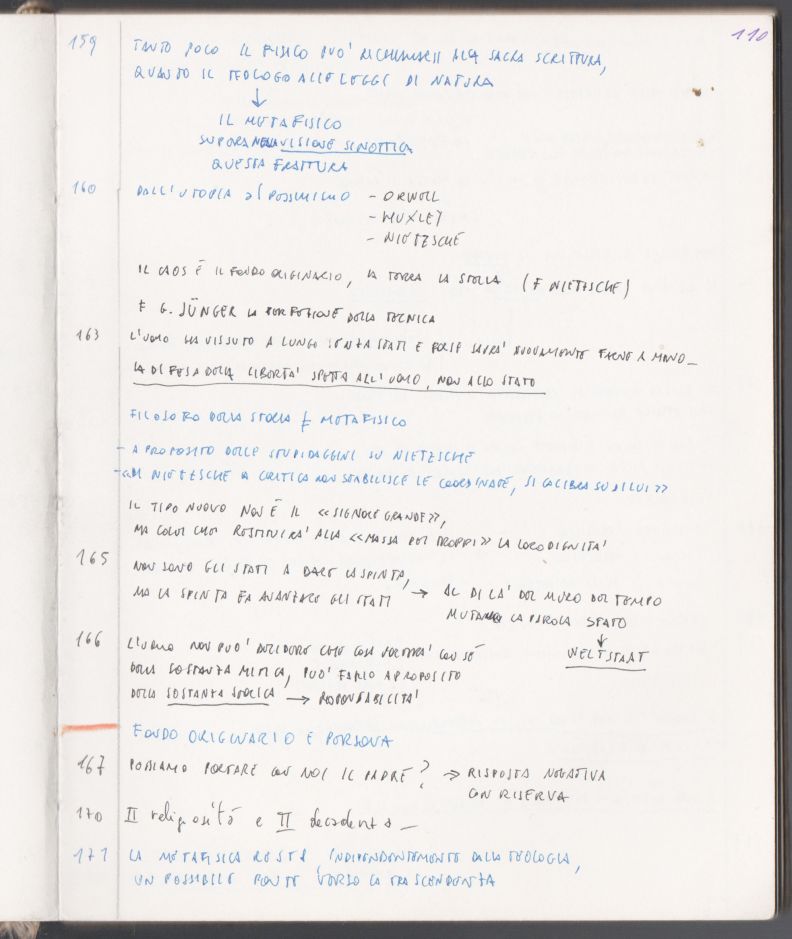 110
159 TANTO POCO IL FISICO PUO' RICHIAMARSI ALLA SACRA SCRITTURA,
QUANTO IL TEOLOGO ALLE LEGGI DI NATURA
↓
IL METAFISICO
SUPERA NELLA VISIONE SINOTTICA
QUESTA FRATTURA
160 DALL'UTOPIA AL PESSIMISMO - ORWELL
- HUXLEY
- NIETZSCHE
IL CAOS È IL FONDO ORIGINARIO, LA TERRA LA STELLA (F NIETZSCHE)
F G. JÜNGER LA PERFEZIONE DELLA TECNICA
163 L'UOMO HA VISSUTO A LUNGO SENZA STATI E FORSE SAPRÀ NUOVAMENTE FARNE A MENO_
LA DIFESA DELLA LIBERTA' SPETTA ALL'UOMO, NON ALLO STATO
FILOSOFO DELLA STORIA ≠ METAFISICO
- A PROPOSITO DELLE STUPIDAGGINI SU NIETZSCHE
NIETZSCHE LA CRITICA NON STABILISCE LE COORDINATE, SI CALIBRA SU DI LUI>>
IL TIPO NUOVO NON È IL <<SIGNORE GRANDE>>,
MA COLUI CHE RESTITUIRA' ALLA <<MASSA DEI TROPPI>> LA LORO DIGNITA'
165 NON SONO GLI STATI A DARE LA SPINTA,
MA LA SPINTA FA AVANZARE GLI STATI → AL DI LA' DEL MURO DEL TEMPO
MUTA LA PAROLA STATO
↓
WELTSTAAT
166 L'UOMO NON PUO' DECIDERE CHE COSA PORTERA' CON SÉ
DELLA SOSTANZA MITICA, PUO' FARLO A PROPOSITO
DELLA SOSTANZA STORICA → RESPONSABILITA'
FONDO ORIGINARIO E PERSONA
167 POSSIAMO PORTARE CON NOI IL PADRE? → RISPOSTA NEGATIVA
CON RISERVA
170 II religiosità e II decadenza_
171 LA METAFISICA RESTA, INDIPENDENTEMENTE DALLA TEOLOGIA,
UN POSSIBILE PONTE VERSO LA TRASCENDENZA